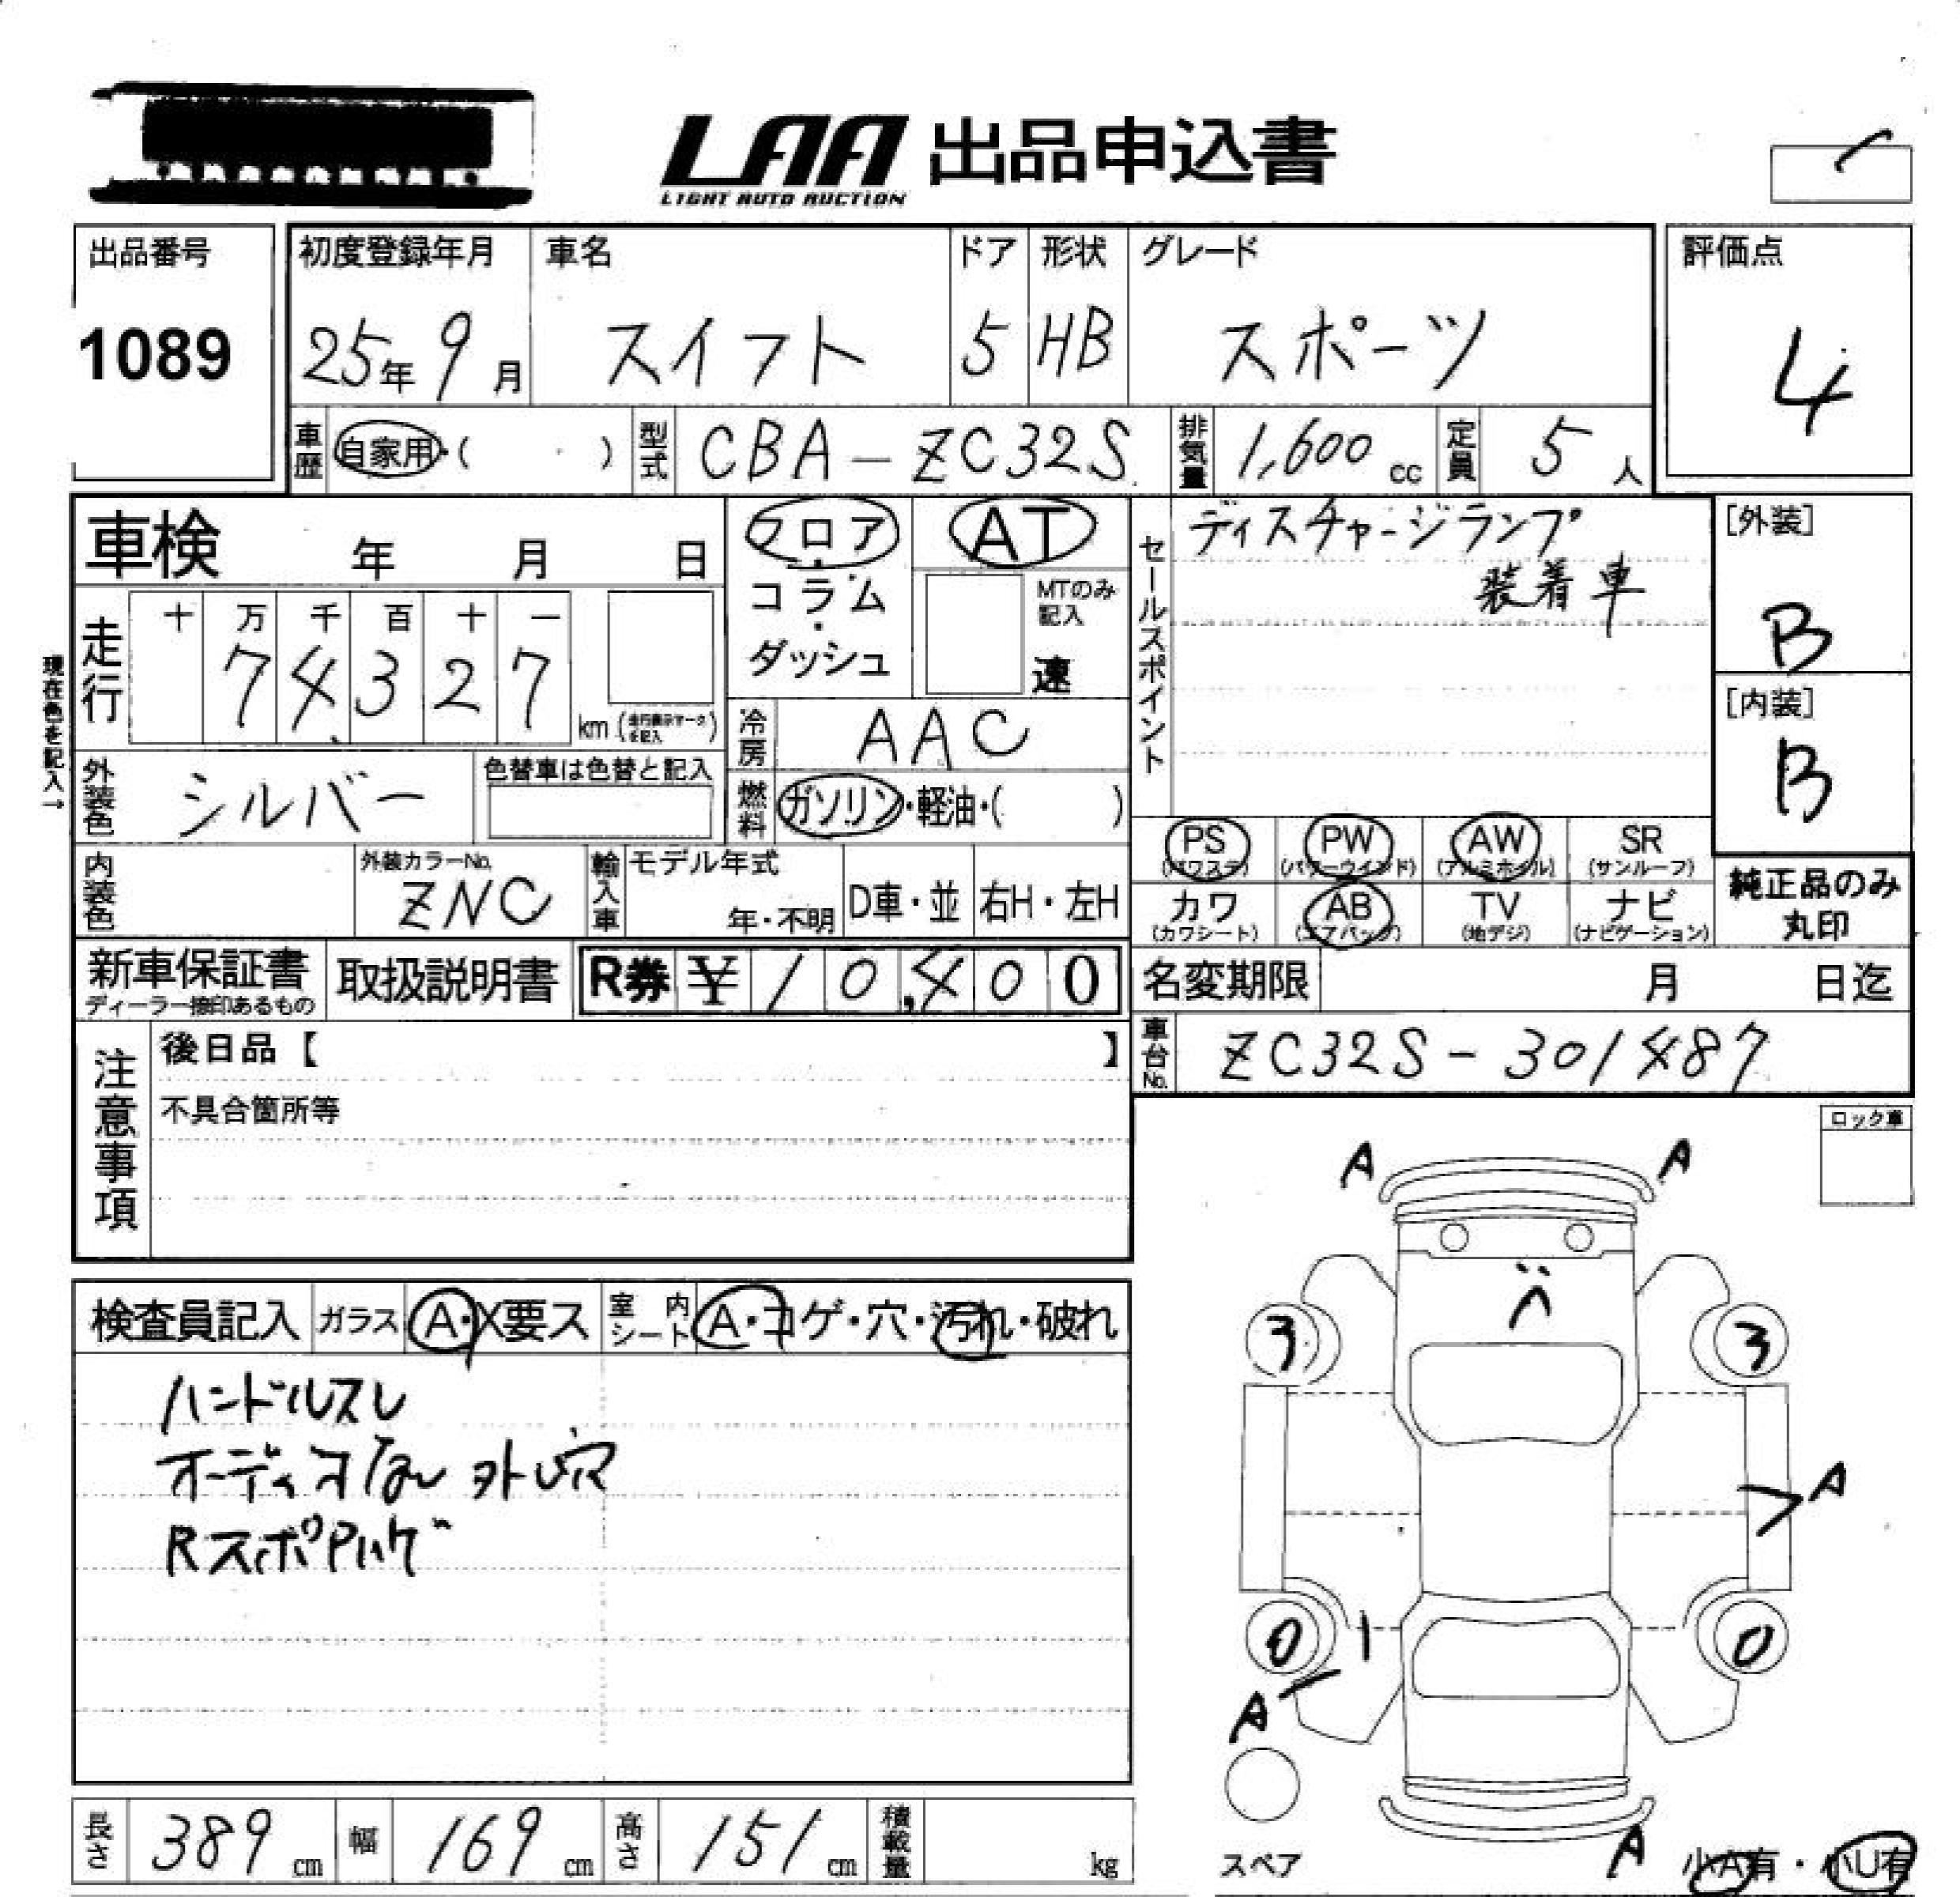 LAA 出品申込書
LIGHT AUTO AUCTION
出品番号
1089
初度登録年月
25年 9月
車名
スイフト
ドア
5
形状
HB
グレード
スポーツ
評価点
4
車歴
自家用・( ・ )
型式
CBA-ZC32S
排気量
1,600 cc
定員
5 人
車検 年 月 日
フロア・コラム・ダッシュ
AT
MTのみ記入
速
セールスポイント
ディスチャージランプ
装着車
[外装]
B
[内装]
B
現在色を記入→
走行
十 万 千 百 十 一
7 4 3 2 7
km (走行表示マークを記入)
冷房
AAC
外装色
シルバー
色替車は色替と記入
燃料
ガソリン・軽油・( )
PS
(パワステ)
PW
(パワーウインド)
AW
(アルミホイル)
SR
(サンルーフ)
カワ
(カワシート)
AB
(エアバッグ)
TV
(地デジ)
ナビ
(ナビゲーション)
純正品のみ
丸印
内装色
外装カラーNo.
ZNC
輸入車
モデル年式
年・不明
D車・並
右H・左H
新車保証書
ディーラー接印あるもの
取扱説明書
R券 ¥ 10,400
名変期限 月 日迄
車台No.
ZC32S-301487
注意事項
後日品【 】
不具合箇所等
ロック車
検査員記入
ガラス
A・X要ス
室内シート
A・コゲ・穴・汚れ・破れ
ハンドルスレ
オーディオなし 外し穴
A
A
3
3
A
0
0
A
A
スペア
小A有・小U有
長さ
389 cm
幅
169 cm
高さ
151 cm
積載量
kg